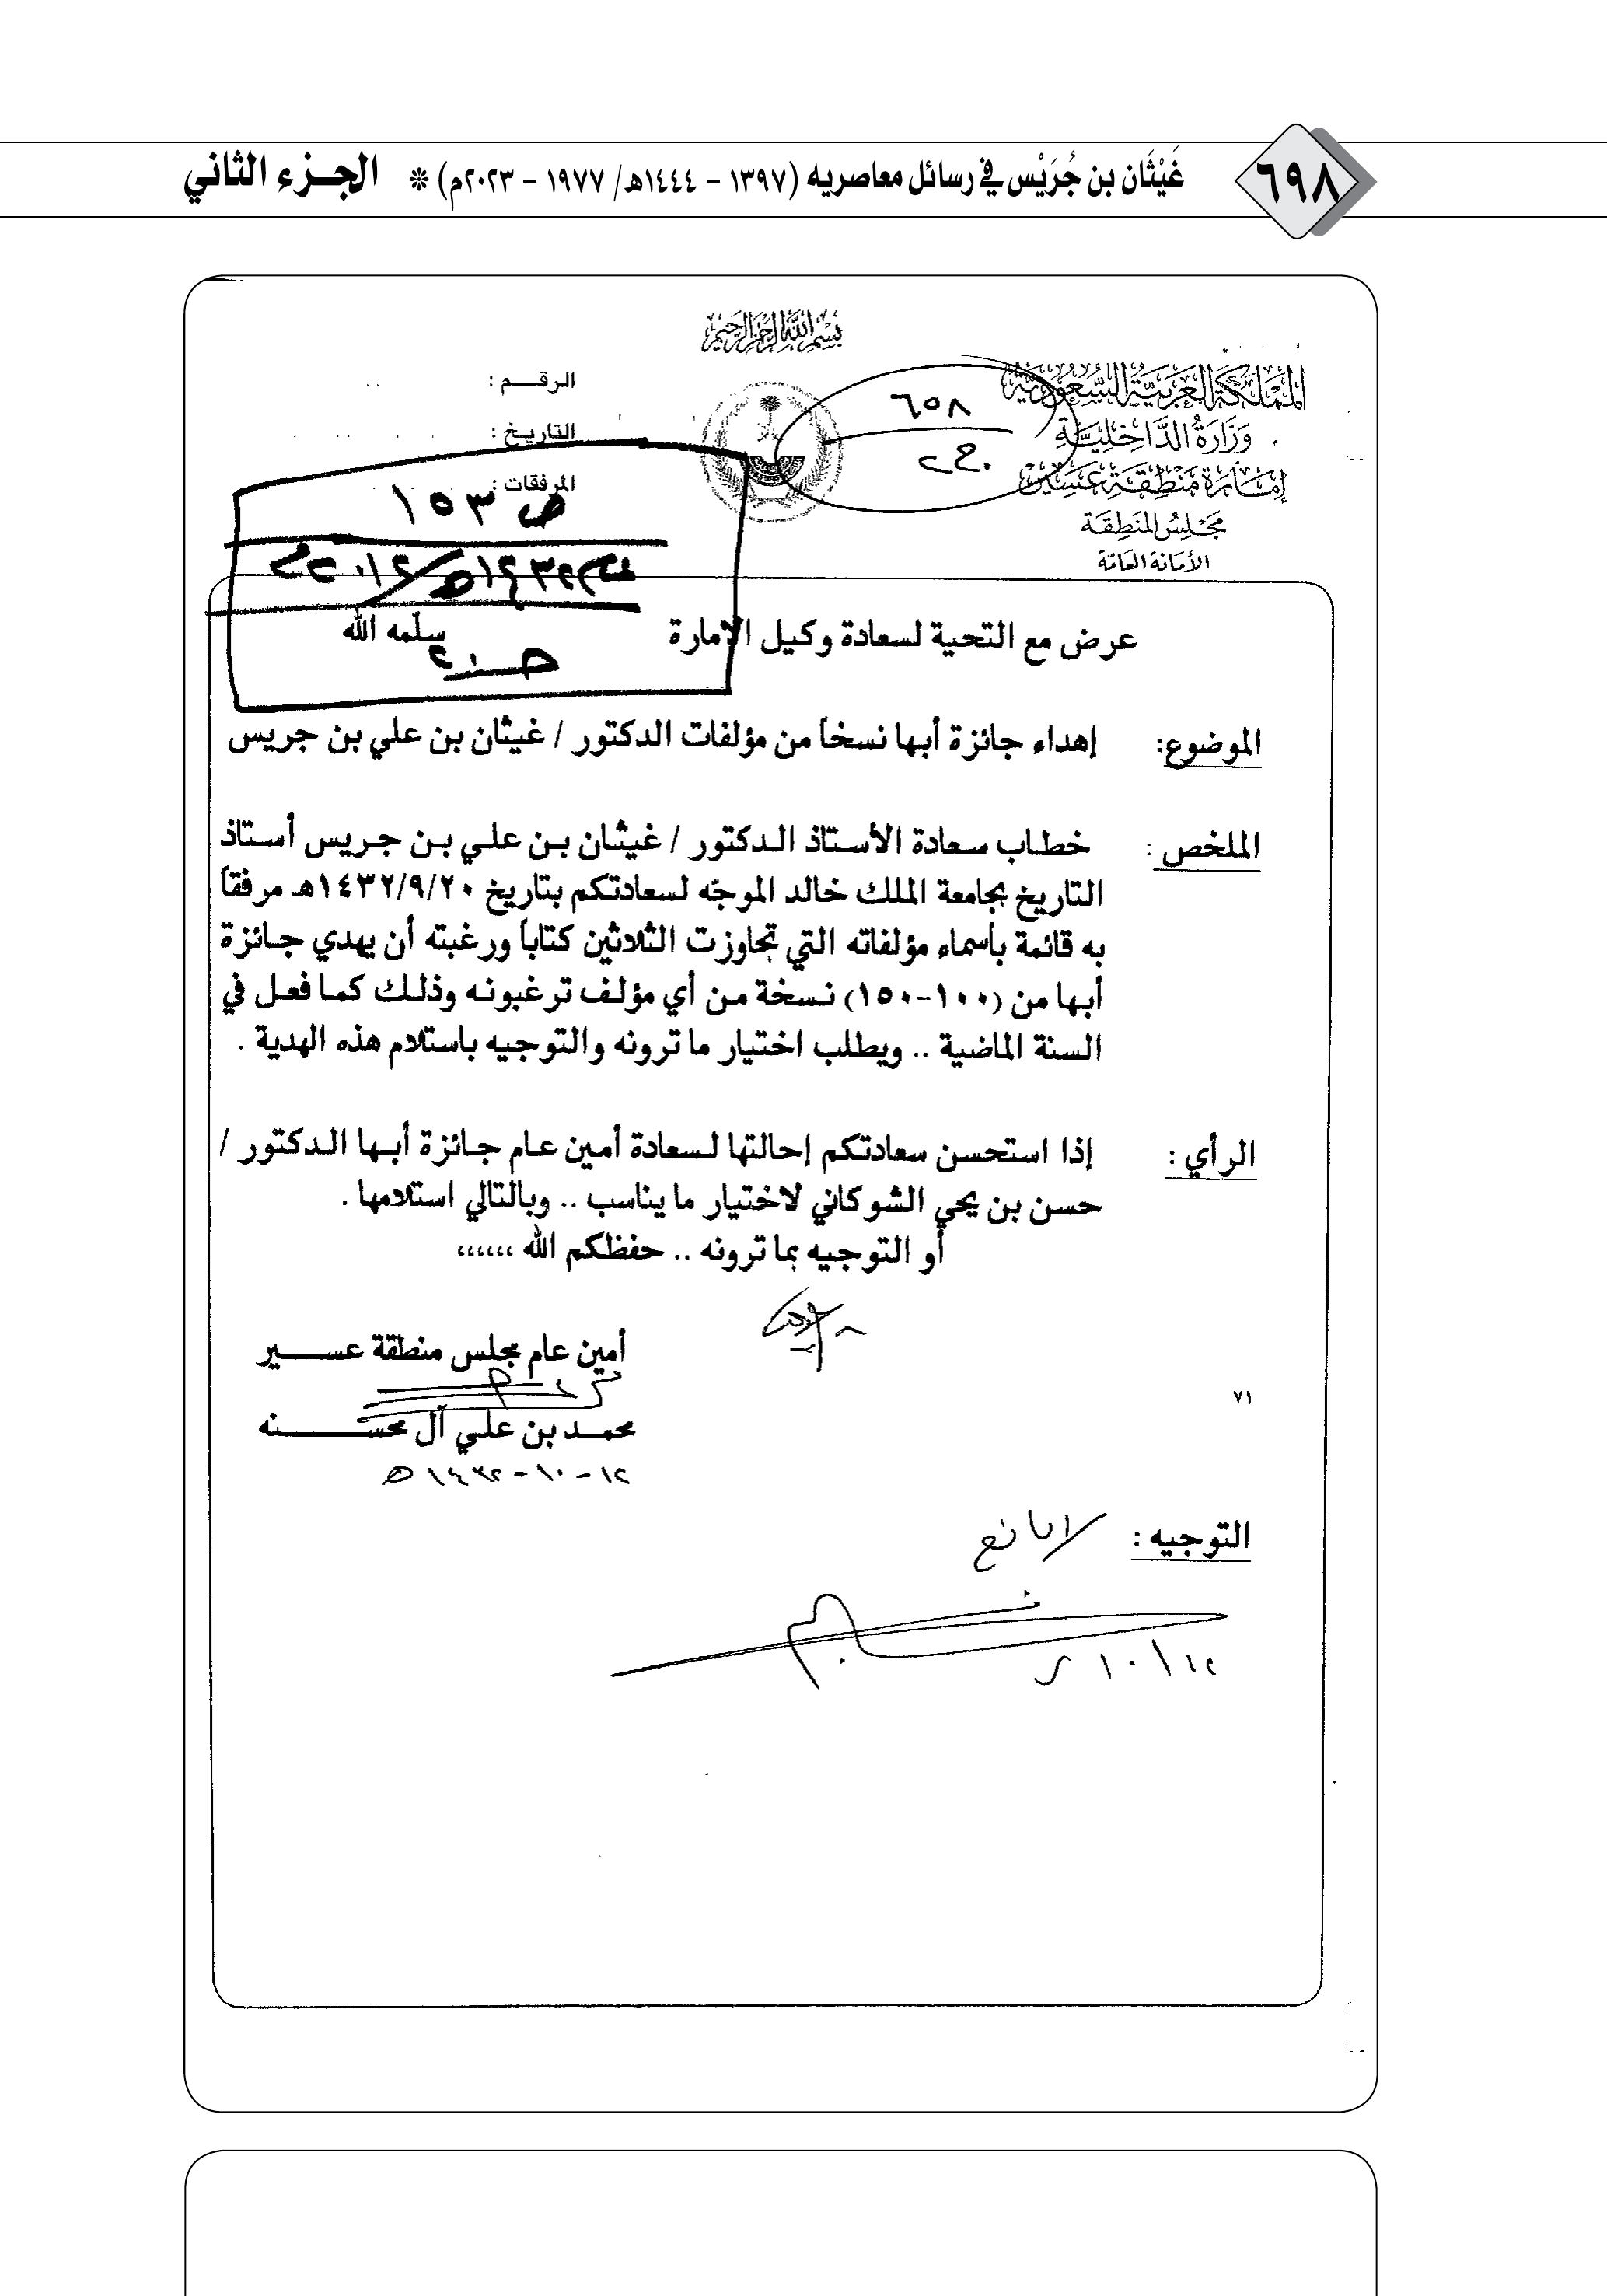 ٦٩٨
غَيْثَان بن جُرَيْس في رسائل معاصريه (١٣٩٧ – ١٤٤٤هـ/ ١٩٧٧ – ٢٠٢٣م) * الجـزء الثاني
بسم الله الرحمن الرحيم
المملكة العربية السعودية
وزارة الداخلية
إمارة منطقة عسير
مجلس المنطقة
الأمانة العامة
٦٥٨
ح٢
الرقـــم :
التاريخ :
المرفقات :
ص ١٥٣
عرض مع التحية لسعادة وكيل الإمارة سلّمه الله
الموضوع: إهداء جائزة أبها نسخاً من مؤلفات الدكتور / غيثان بن علي بن جريس
الملخص : خطاب سعادة الأستاذ الدكتور / غيثان بن علي بن جريس أستاذ
التاريخ بجامعة الملك خالد الموجّه لسعادتكم بتاريخ ١٤٣٢/٩/٢٠هـ مرفقاً
به قائمة بأسماء مؤلفاته التي تجاوزت الثلاثين كتاباً ورغبته أن يهدي جائزة
أبها من (١٠٠-١٥٠) نسخة من أي مؤلف ترغبونه وذلك كما فعل في
السنة الماضية .. ويطلب اختيار ما ترونه والتوجيه باستلام هذه الهدية .
الرأي : إذا استحسن سعادتكم إحالتها لسعادة أمين عام جائزة أبها الدكتور /
حسن بن يحي الشوكاني لاختيار ما يناسب .. وبالتالي استلامها .
أو التوجيه بما ترونه .. حفظكم الله ،،،،،،
أمين عام مجلس منطقة عســـير
محمد بن علي آل محســـنه
١٢-١٠-١٤٣٢هـ
٧١
التوجيه : لا مانع
١٠/١٢